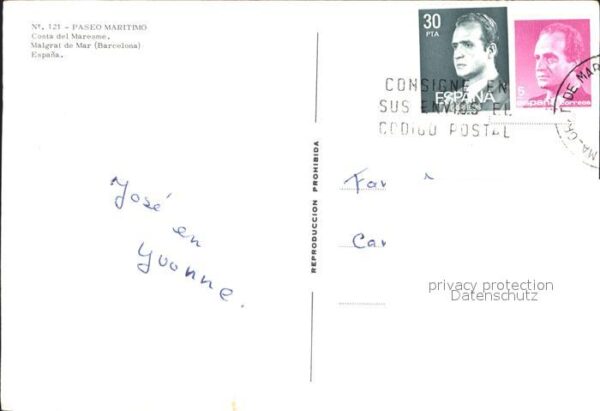 Nº. 121 - PASEO MARITIMO
Costa del Maresme.
Malgrat de Mar (Barcelona)
España.
30
PTA
ESPAÑA
5
españa correos
CONSIGNE EN
SUS ENVIOS EL
CODIGO POSTAL
DE MAR
REPRODUCCION PROHIBIDA
José en
Yvonne.
Fa
Ca
privacy protection
Datenschutz